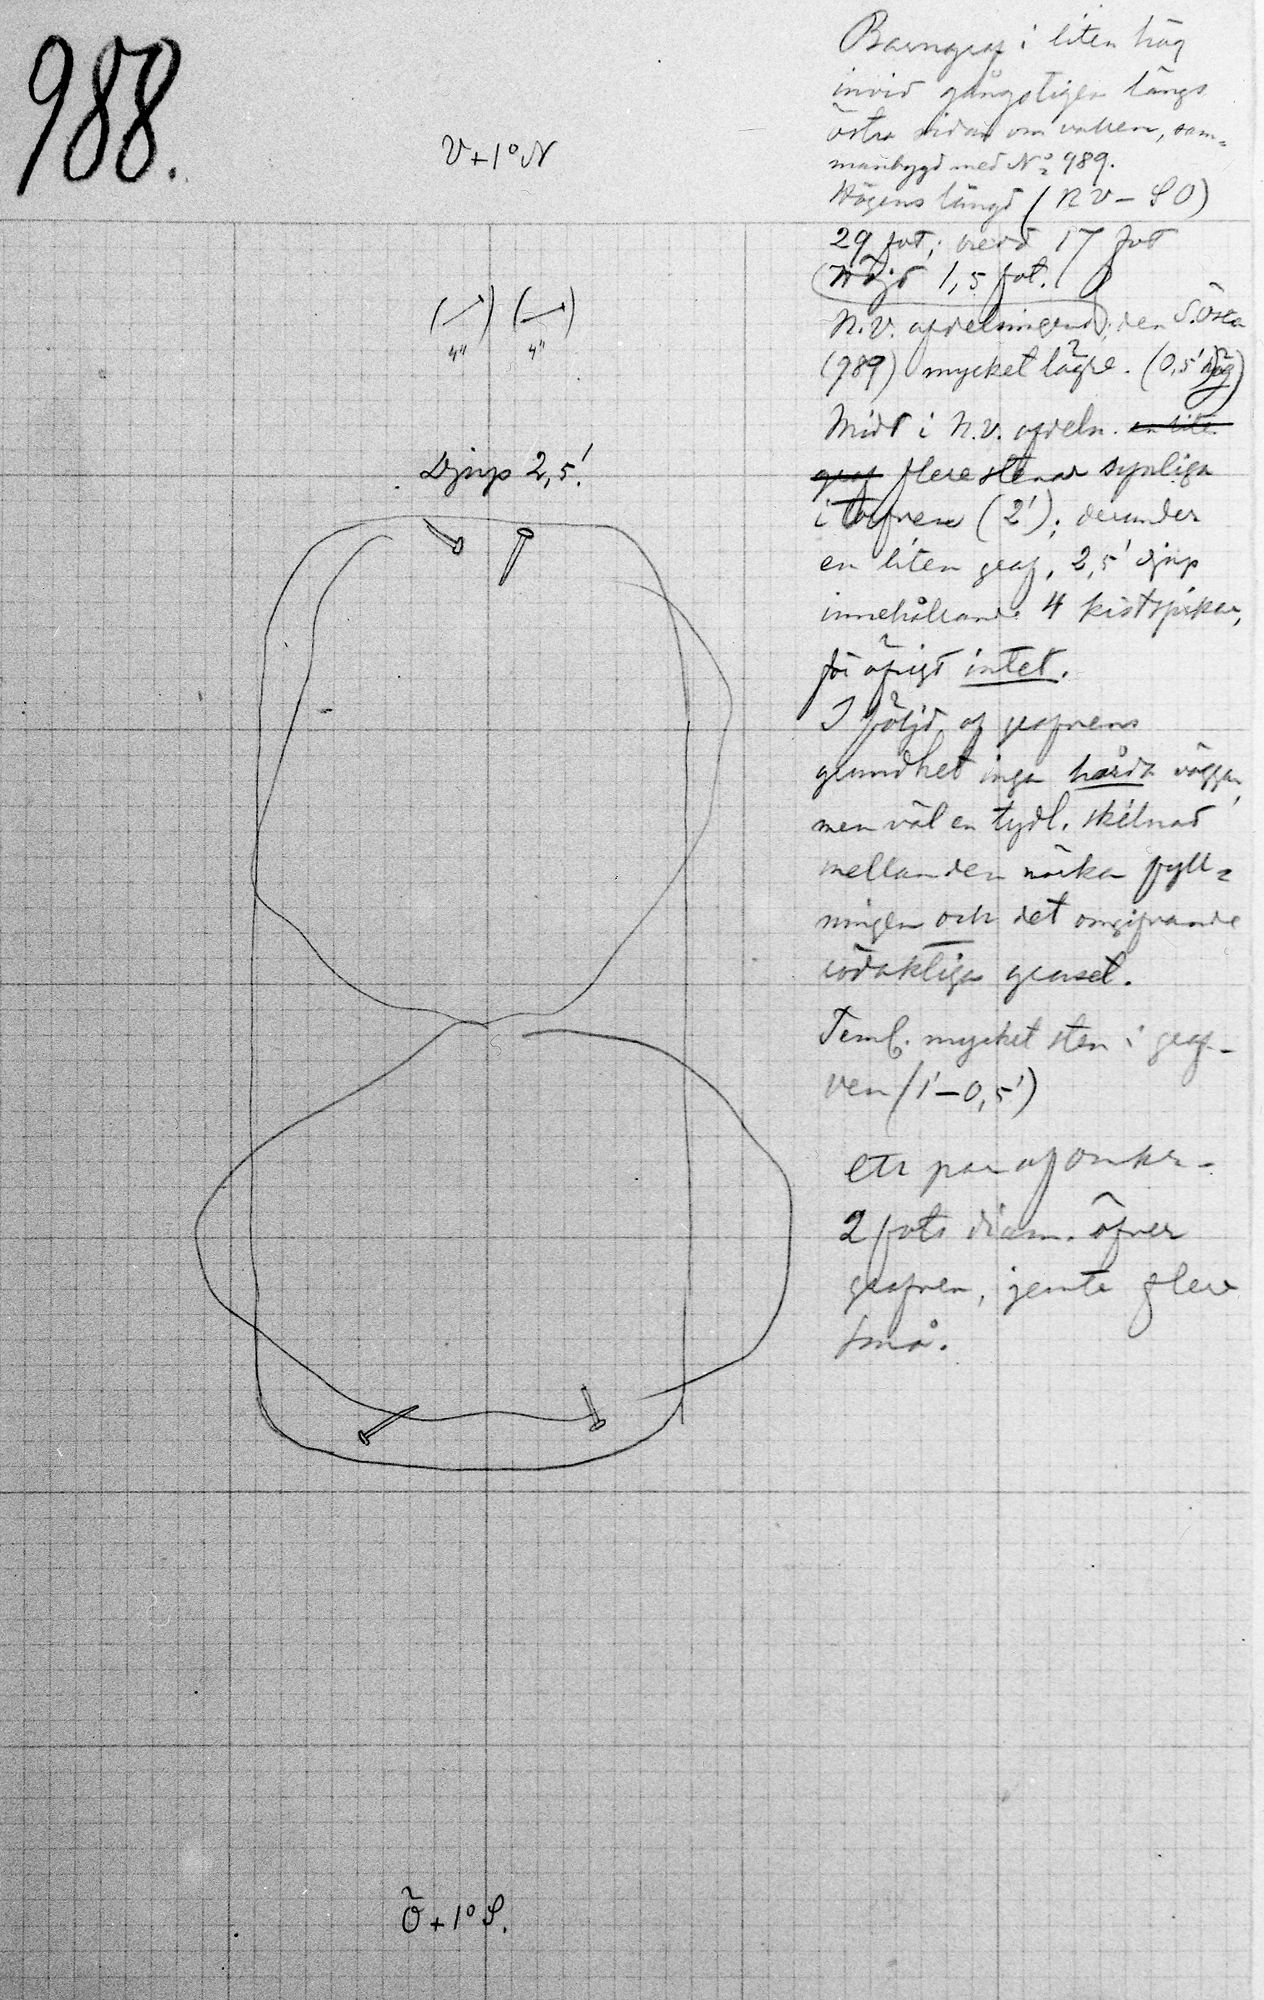 988.
V+1° N
4" 4"
Djup 2,5'.
Ö+1° S.
Barngraf i liten hög
invid gångstigen längs
östra sidan om vallen, sam-
manbygd med No 989.
Högens längd (NV–SO)
29 fot; bredd 17 fot
Höjd 1,5 fot.
N.V. afdelningen, den S. Östra
(989) mycket lägre. (0,5' hög)
Midt i N.V. afdeln. en lite
graf flere stenar synliga
i torfven (2'); derunder
en liten graf, 2,5' djup
innehållande 4 kistspikar,
för öfrigt intet.
I följd af grafvens
grundhet inga hårda väggar,
men väl en tydl. skilnad
mellan den mörka fyll-
ningen och det omgifvande
rödaktiga gruset.
Teml. mycket sten i graf-
ven (1'–0,5')
ett par af omkr.
2 fots diam. öfver
grafven, jemte flere
små.